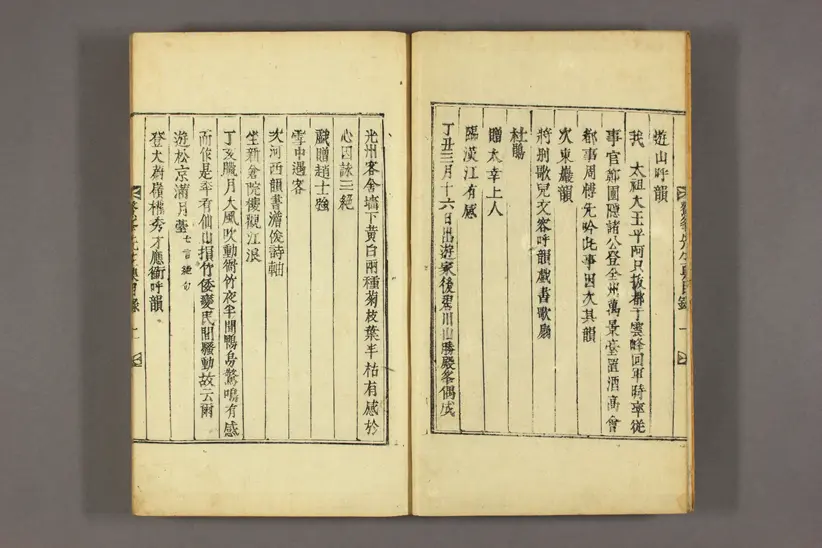 遊山呼韻
我 太祖大王平阿只拔都于雲峰回軍時率從
事官鄭圃隱諸公登全州萬景臺置酒高會
都事周博先吟此事因次其韻
次東巖韻
將別歌兒文客呼韻戲書歌扇
杜鵑
贈太幸上人
臨漢江有感
丁丑三月十六日出遊家後 川山勝殿峯偶成
光州客舍墻下黃白兩種菊枝葉半枯有感於
心因詠三絕
戲贈趙士強
雪中遇客
次河西韻書澹俊詩軸
坐新倉院樓觀江浪
丁亥臘月大風吹動衙竹夜半聞鴨身驚鳴有感
而作是年有仙山損竹倭變民間騷動故云爾
遊松京滿月臺七言絕句
登大蔚嶺拂秀才應衙呼韻